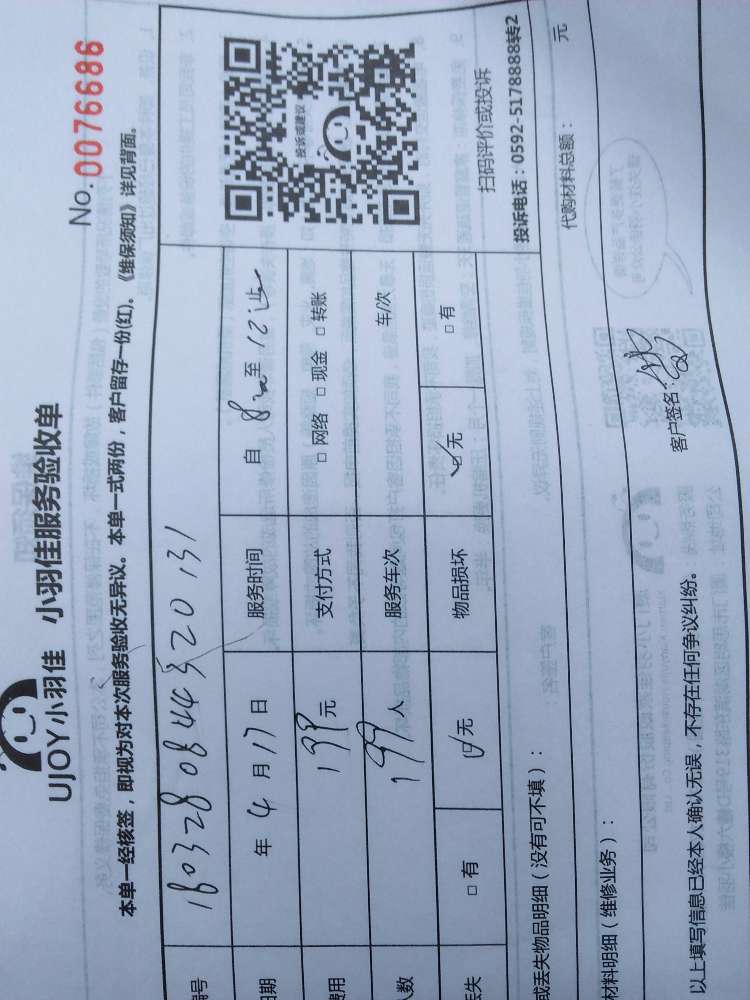 No. 0076686
UJOY小羽佳 小羽佳服务验收单
本单一经核签，即视为对本次服务验收无异议。本单一式两份，客户留存一份(红)。《维保须知》详见背面。
投诉或建议
扫码评价或投诉
投诉电话：0592-5178888转2
编号
日期 年 4 月 17 日 服务时间 自 8 至 12
费用 199 元 支付方式 □ 网络 □ 现金 □ 转账
人数 199 人 服务车次 车/次
丢失 □ 有 ☑ 无 物品损坏 ☑ 无 □ 有
或丢失物品明细（没有可不填）：
材料明细（维修业务）： 代购材料总额： 元
以上填写信息已经本人确认无误，不存在任何争议纠纷。 客户签名：